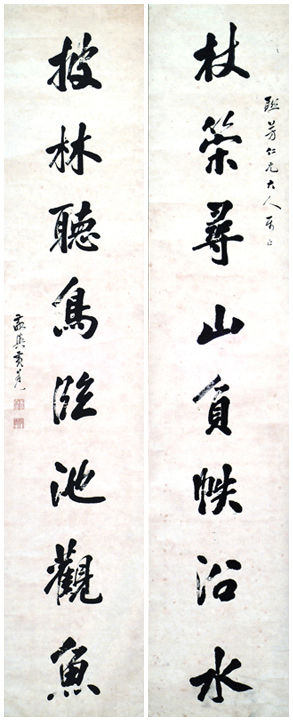 杖策尋山負帙沿水
芳仁兄大人
披林聽鳥臨池觀魚
嘉興黃